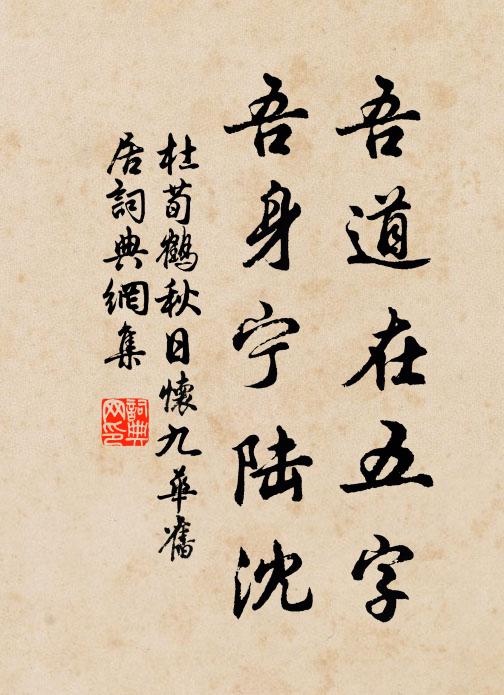 吾道在五字
吾身宁陆沈
杜荀鶴秋日懷九華舊
居詞典網集
詞典
网印